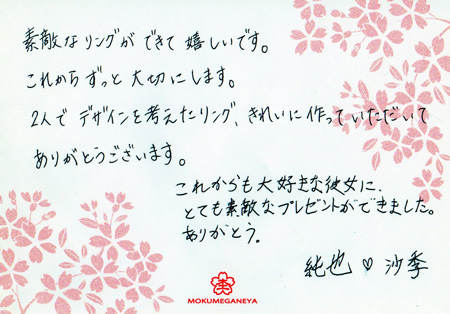 素敵なリングができて嬉しいです。
これからずっと大切にします。
2人でデザインを考えたリング、きれいに作っていただいて
ありがとうございます。
これからも大好きな彼女に、
とても素敵なプレゼントができました。
ありがとう。
純也♡沙季
MOKUMEGANEYA